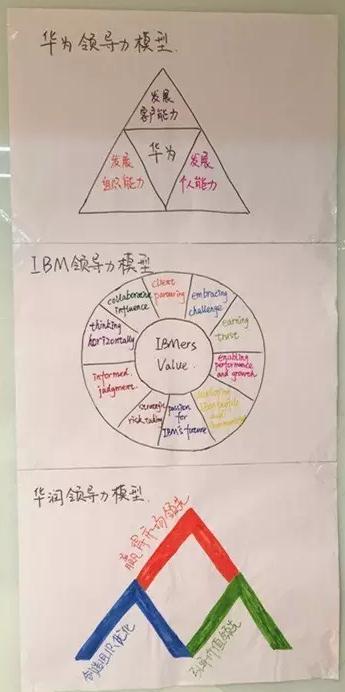 华为领导力模型.
发展
客户能力
华为
发展
组织能力
发展
个人能力
IBM领导力模型
IBMers
Value.
client
partnering
embracing
challenge
earning
trust
enabling
performance
and growth
developing
IBM people
and
passion
for
IBM's future
strategic
risk taking
informed
judgment.
thinking
horizontally
collaborative
influence
华润领导力模型.
赢得市场领先
创造组织优化
引领价值领先